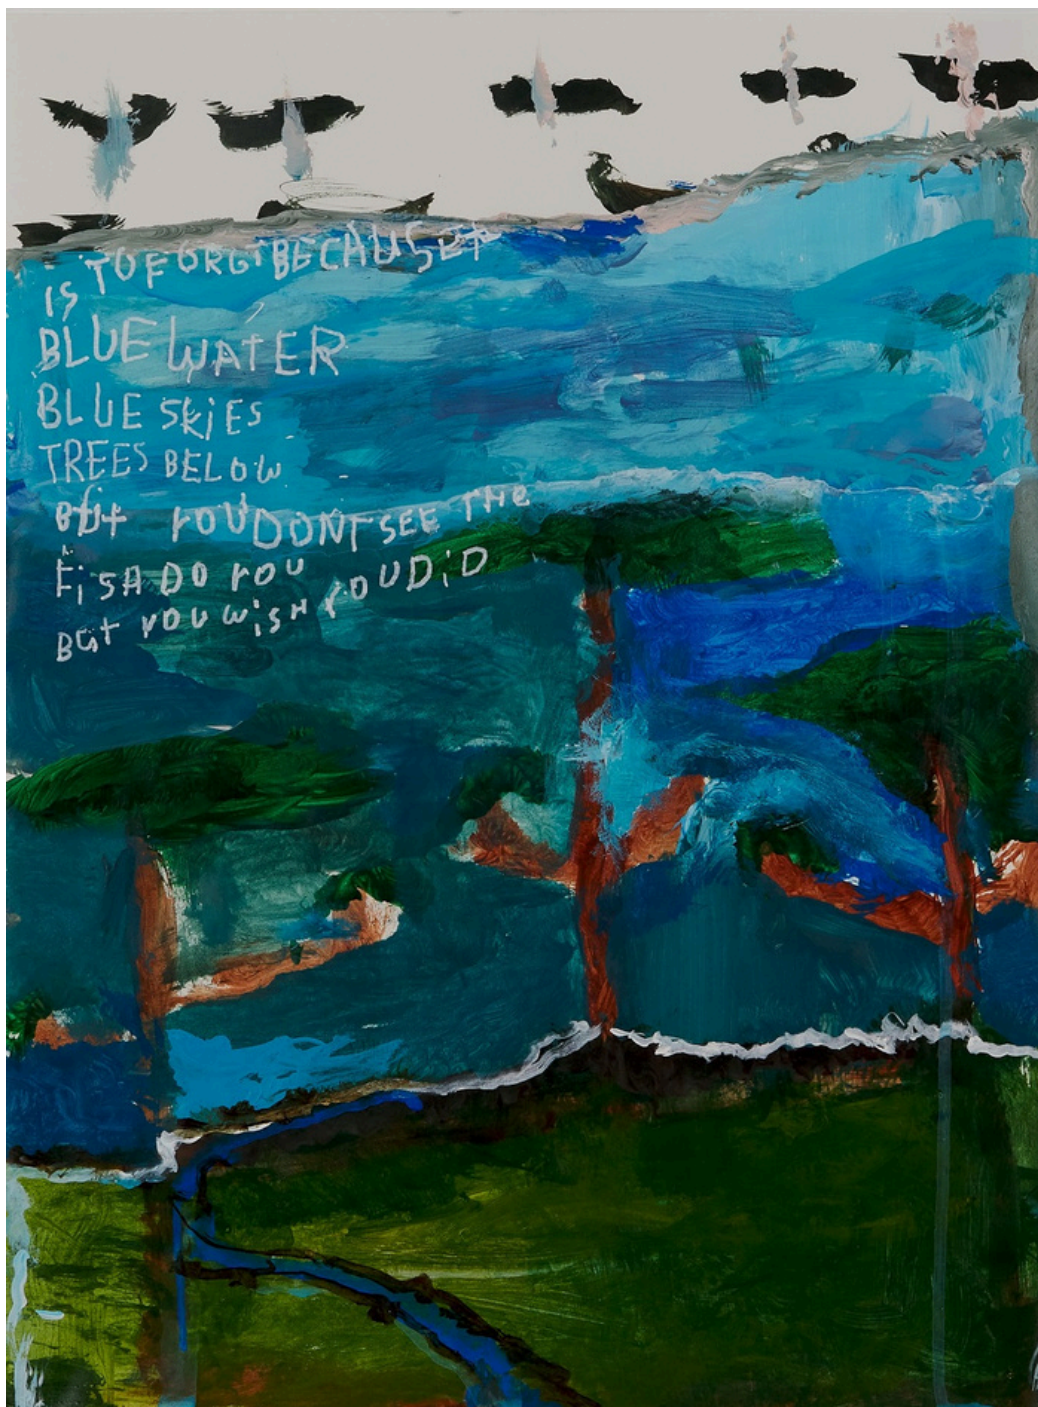 TOFORGTBECAUSEit
iS
BLUE WATER
BLUE SKiES
TREES BELOW
BUt YOU DONT SEE THe
FiSH DO YOU
BUt YOU WiSH YOU DiD